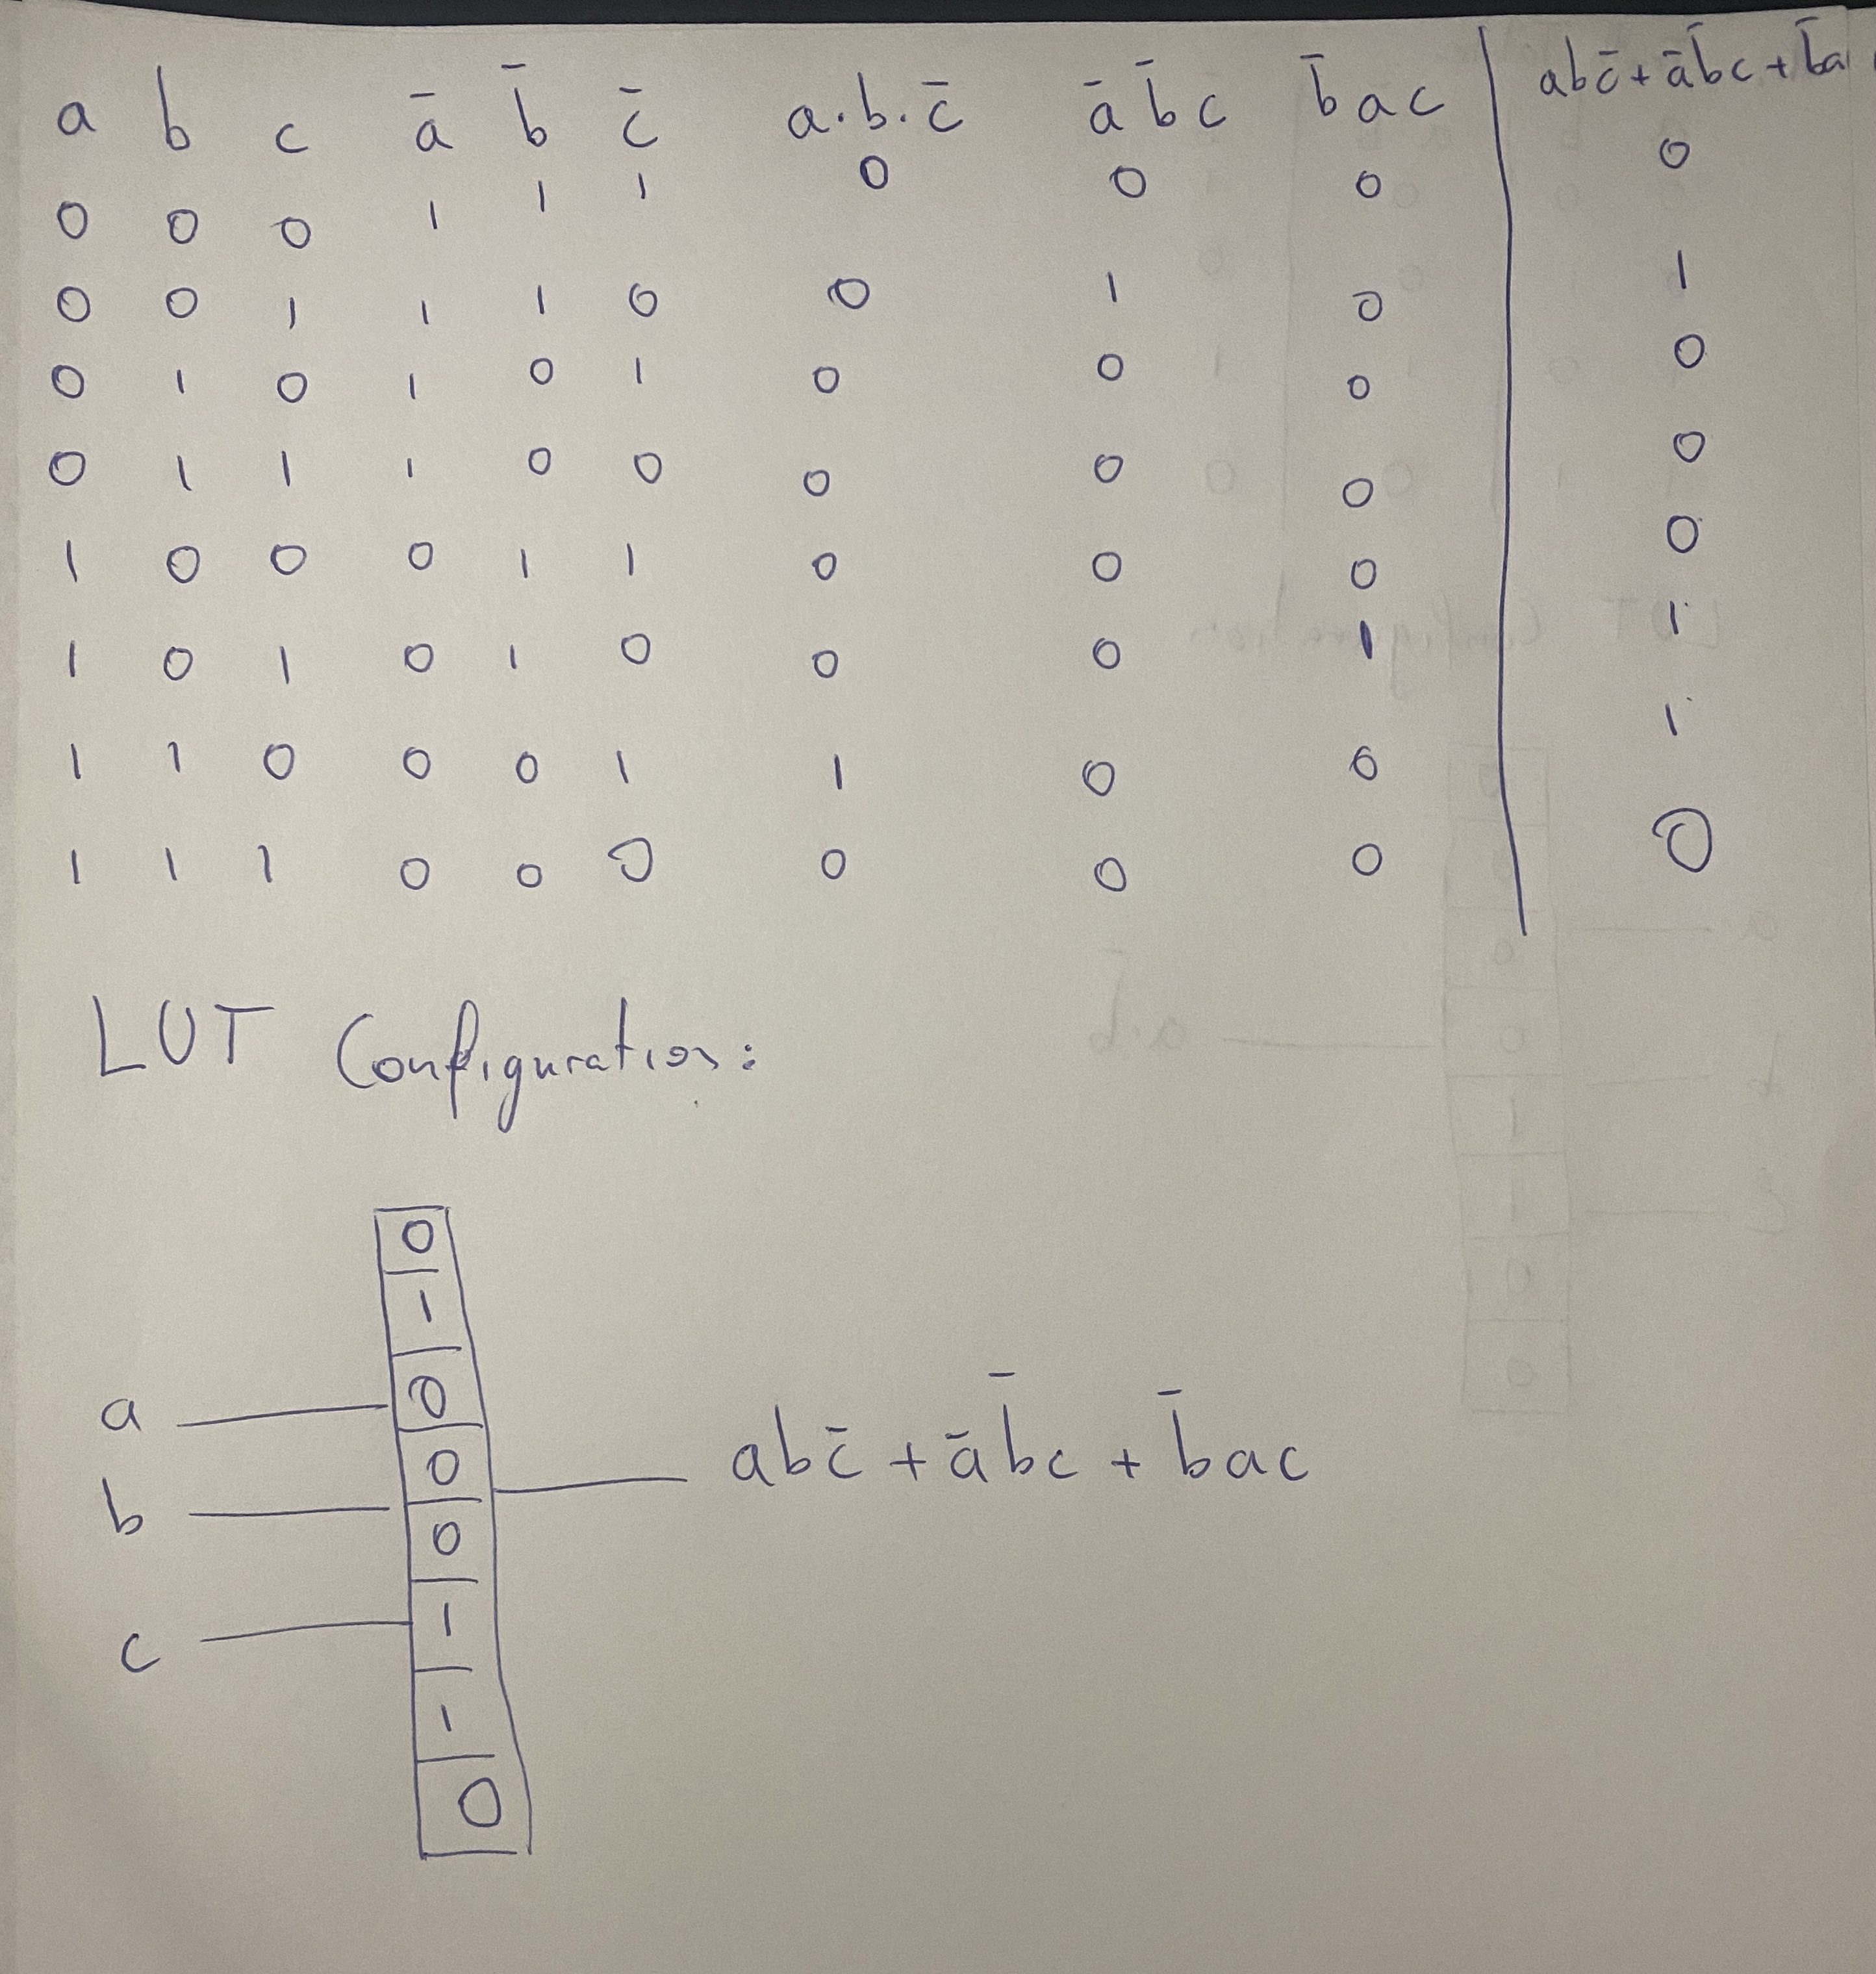 a b c ā b̄ c̄ a·b·c̄ ā b̄ c b̄ a c abc̄ + āb̄c + b̄a
0 0 0 1 1 1 0 0 0 0
0 0 1 1 1 0 0 1 0 1
0 1 0 1 0 1 0 0 0 0
0 1 1 1 0 0 0 0 0 0
1 0 0 0 1 1 0 0 0 0
1 0 1 0 1 0 0 0 1 1
1 1 0 0 0 1 1 0 0 1
1 1 1 0 0 0 0 0 0 0
LUT Configuration:
0
1
0
a
0
abc̄ + āb̄c + b̄ac
b
0
1
c
1
0